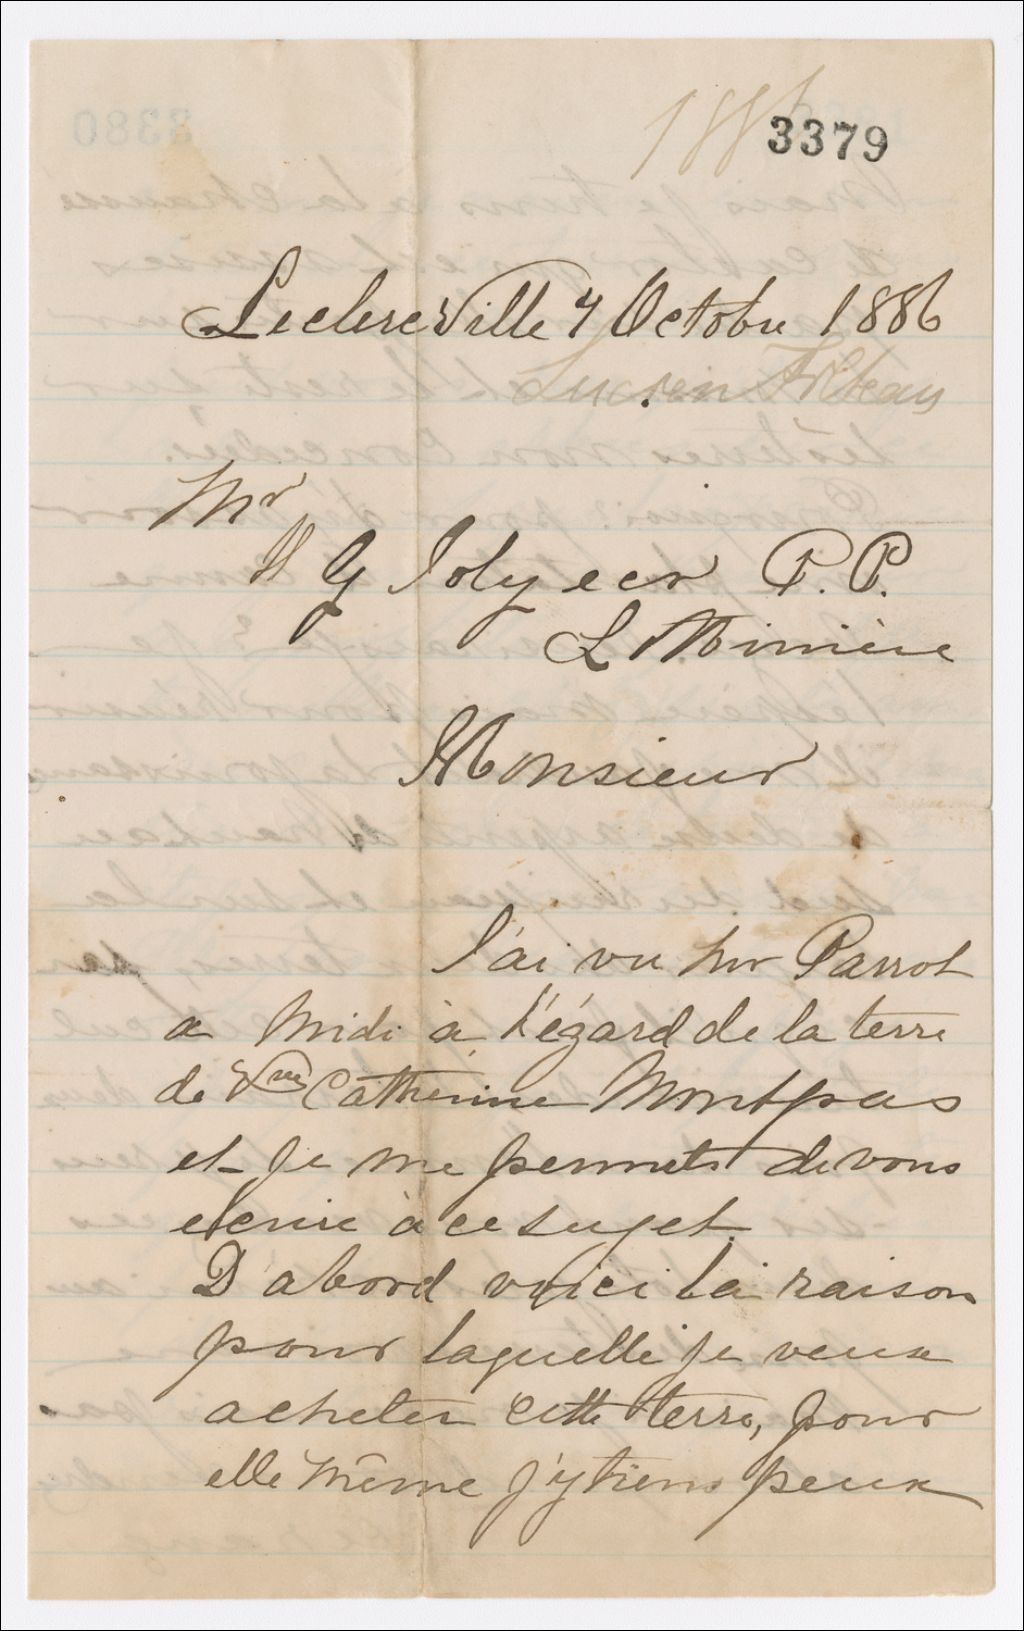 1886
3379
Leclercville 4 Octobre 1886
Lucien
Mr
H G Joly ecr P.P.
Lotbinière
Monsieur
J'ai vu Mr Parrot
a Midi à l'égard de la terre
de Vve Catherine Montpas
et je me permets de vous
ecrire à ce sujet.
D'abord voici la raison
pour laquelle je veux
acheter cette terre, pour
elle même j'y tiens peux